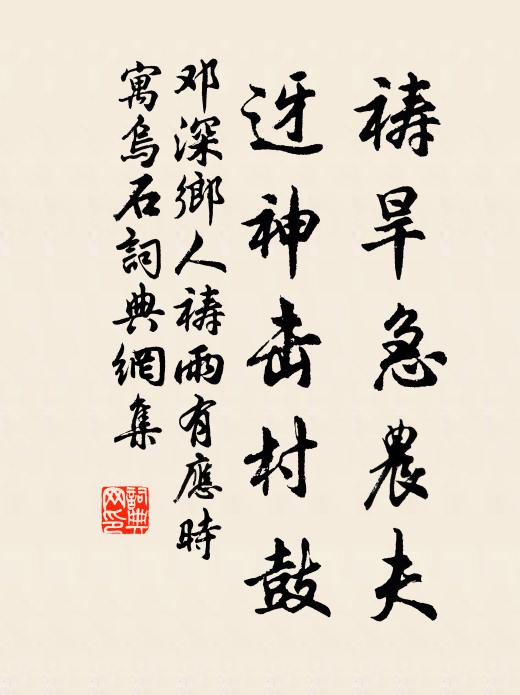 祷旱急農夫
迓神击村鼓
邓深鄉人祷雨有應時
寓烏石詞典網集
詞典网印